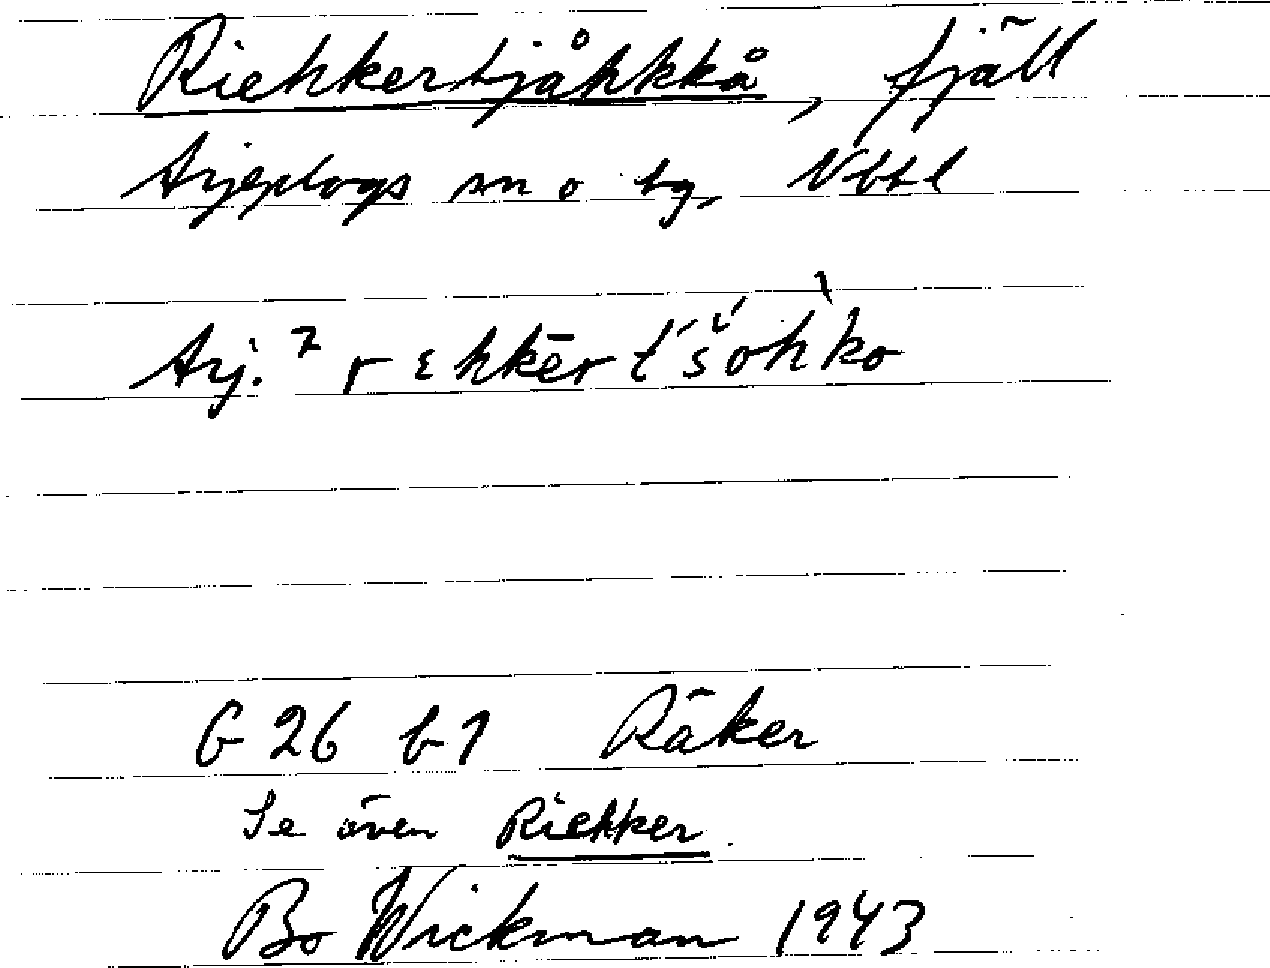 Riehkertjåhkkå, fjäll
Arjeplogs sn o tg, Vbtl
Arj. 7 rɛhkēr t́š́ohˋko
G 26 b 1 Räker
Se även Riehker.
Bo Wickman 1943